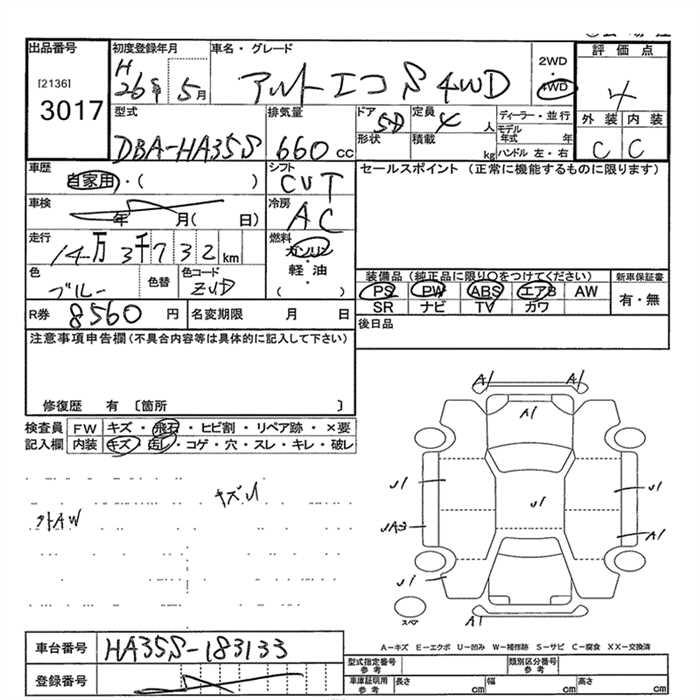 出品番号 初度登録年月 車名・グレード 2WD 評価点
[2136] H
3017 26年 5月 アルトエコ S 4WD 4WD 4
型式 排気量 ドア 定員 ディーラー・並行 外装 内装
DBA-HA35S 660cc 5D 4人 モデル年式 年 C C
形状 積載 kg ハンドル 左・右
車歴 シフト セールスポイント (正常に機能するものに限ります)
自家用・( ) CVT
車検 冷房
年 月( 日) AC
走行 燃料
14万3千732km ガソリン・軽油
色 色替 色コード ( ) 装備品 (純正品に限り○をつけてください) 新車保証書
ブルー ZUD PS PW ABS エアB AW 有・無
SR ナビ TV カワ
R券 8560円 名変期限 月 日 後日品
注意事項申告欄(不具合内容等は具体的に記入して下さい)
修復歴 有 〔箇所 〕
検査員 FW キズ・飛石・ヒビ割・リペア跡・×要
記入欄 内装 キズ・汚レ・コゲ・穴・スレ・キレ・破レ
A1 A1
A1
キズU
U1 U1 U1
外AW
UA3 A1
U1
スペア A1
車台番号 HA35S-183133
A-キズ E-エクボ U-凹み W-補修跡 S-サビ C-腐食 XX-交換済
型式指定番号 参考 類別区分番号 参考
登録番号 車庫証明用 参考 長さ cm 幅 cm 高さ cm